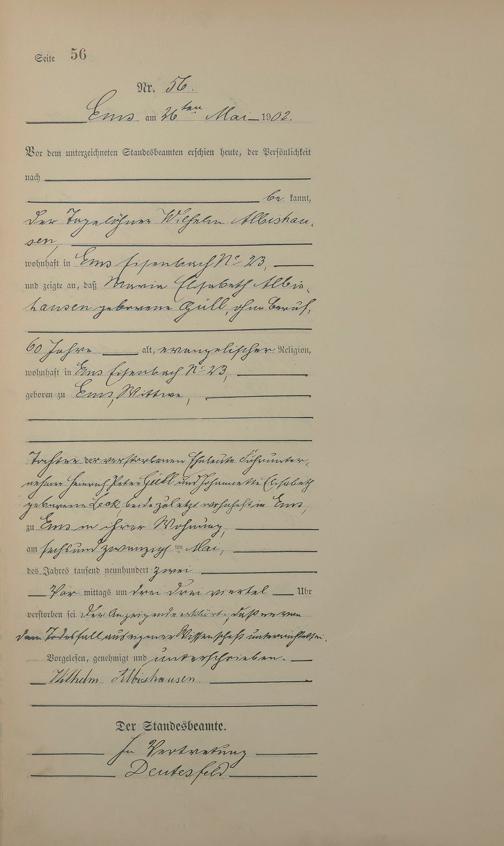 Seite 56
Nr. 56.
Ems am 26ten Mai 1902.
Vor dem unterzeichneten Standesbeamten erschien heute, der Persönlichkeit
nach
be kannt,
der Tagelöhner Wilhelm Albishau-
sen,
wohnhaft in Ems Eisenbach No 23,
und zeigte an, daß Maria Elisabeth Albis-
hausen geborene Güll, ohne Beruf,
60 Jahre alt, evangelischer Religion,
wohnhaft in Ems Eisenbach No 23,
geboren zu Ems, Wittwe,
Tochter der verstorbenen Eheleute Fuhrunter-
nehmer Heinrich Peter Güll und Johannette Elisabeth
geborenen beide zuletzt wohnhaft in Ems,
zu Ems in ihrer Wohnung,
am sechsundzwanzig ten Mai,
des Jahres tausend neunhundert zwei
Vor mittags um drei drei viertel Uhr
verstorben sei. Der Anzeigende erklärte, daß er von
dem Todesfall aus eigener Wissenschaft unterrichtet sei.
Vorgelesen, genehmigt und unterschrieben.
Wilhelm Albishausen
Der Standesbeamte.
In Vertretung
Deutesfeld